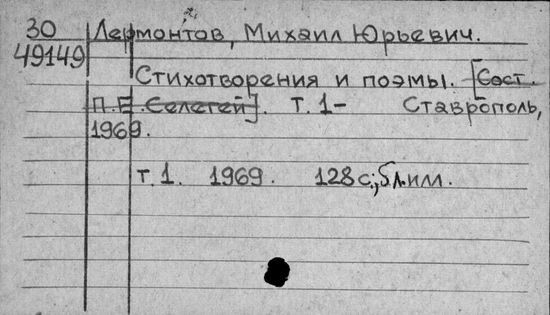 30 Лермонтов, Михаил Юрьевич.
49149
Стихотворения и поэмы. [Сост.
П.Е. Селегей]. т. 1- Ставрополь,
1969.
т. 1. 1969. 128 с.; 5 л. илл.